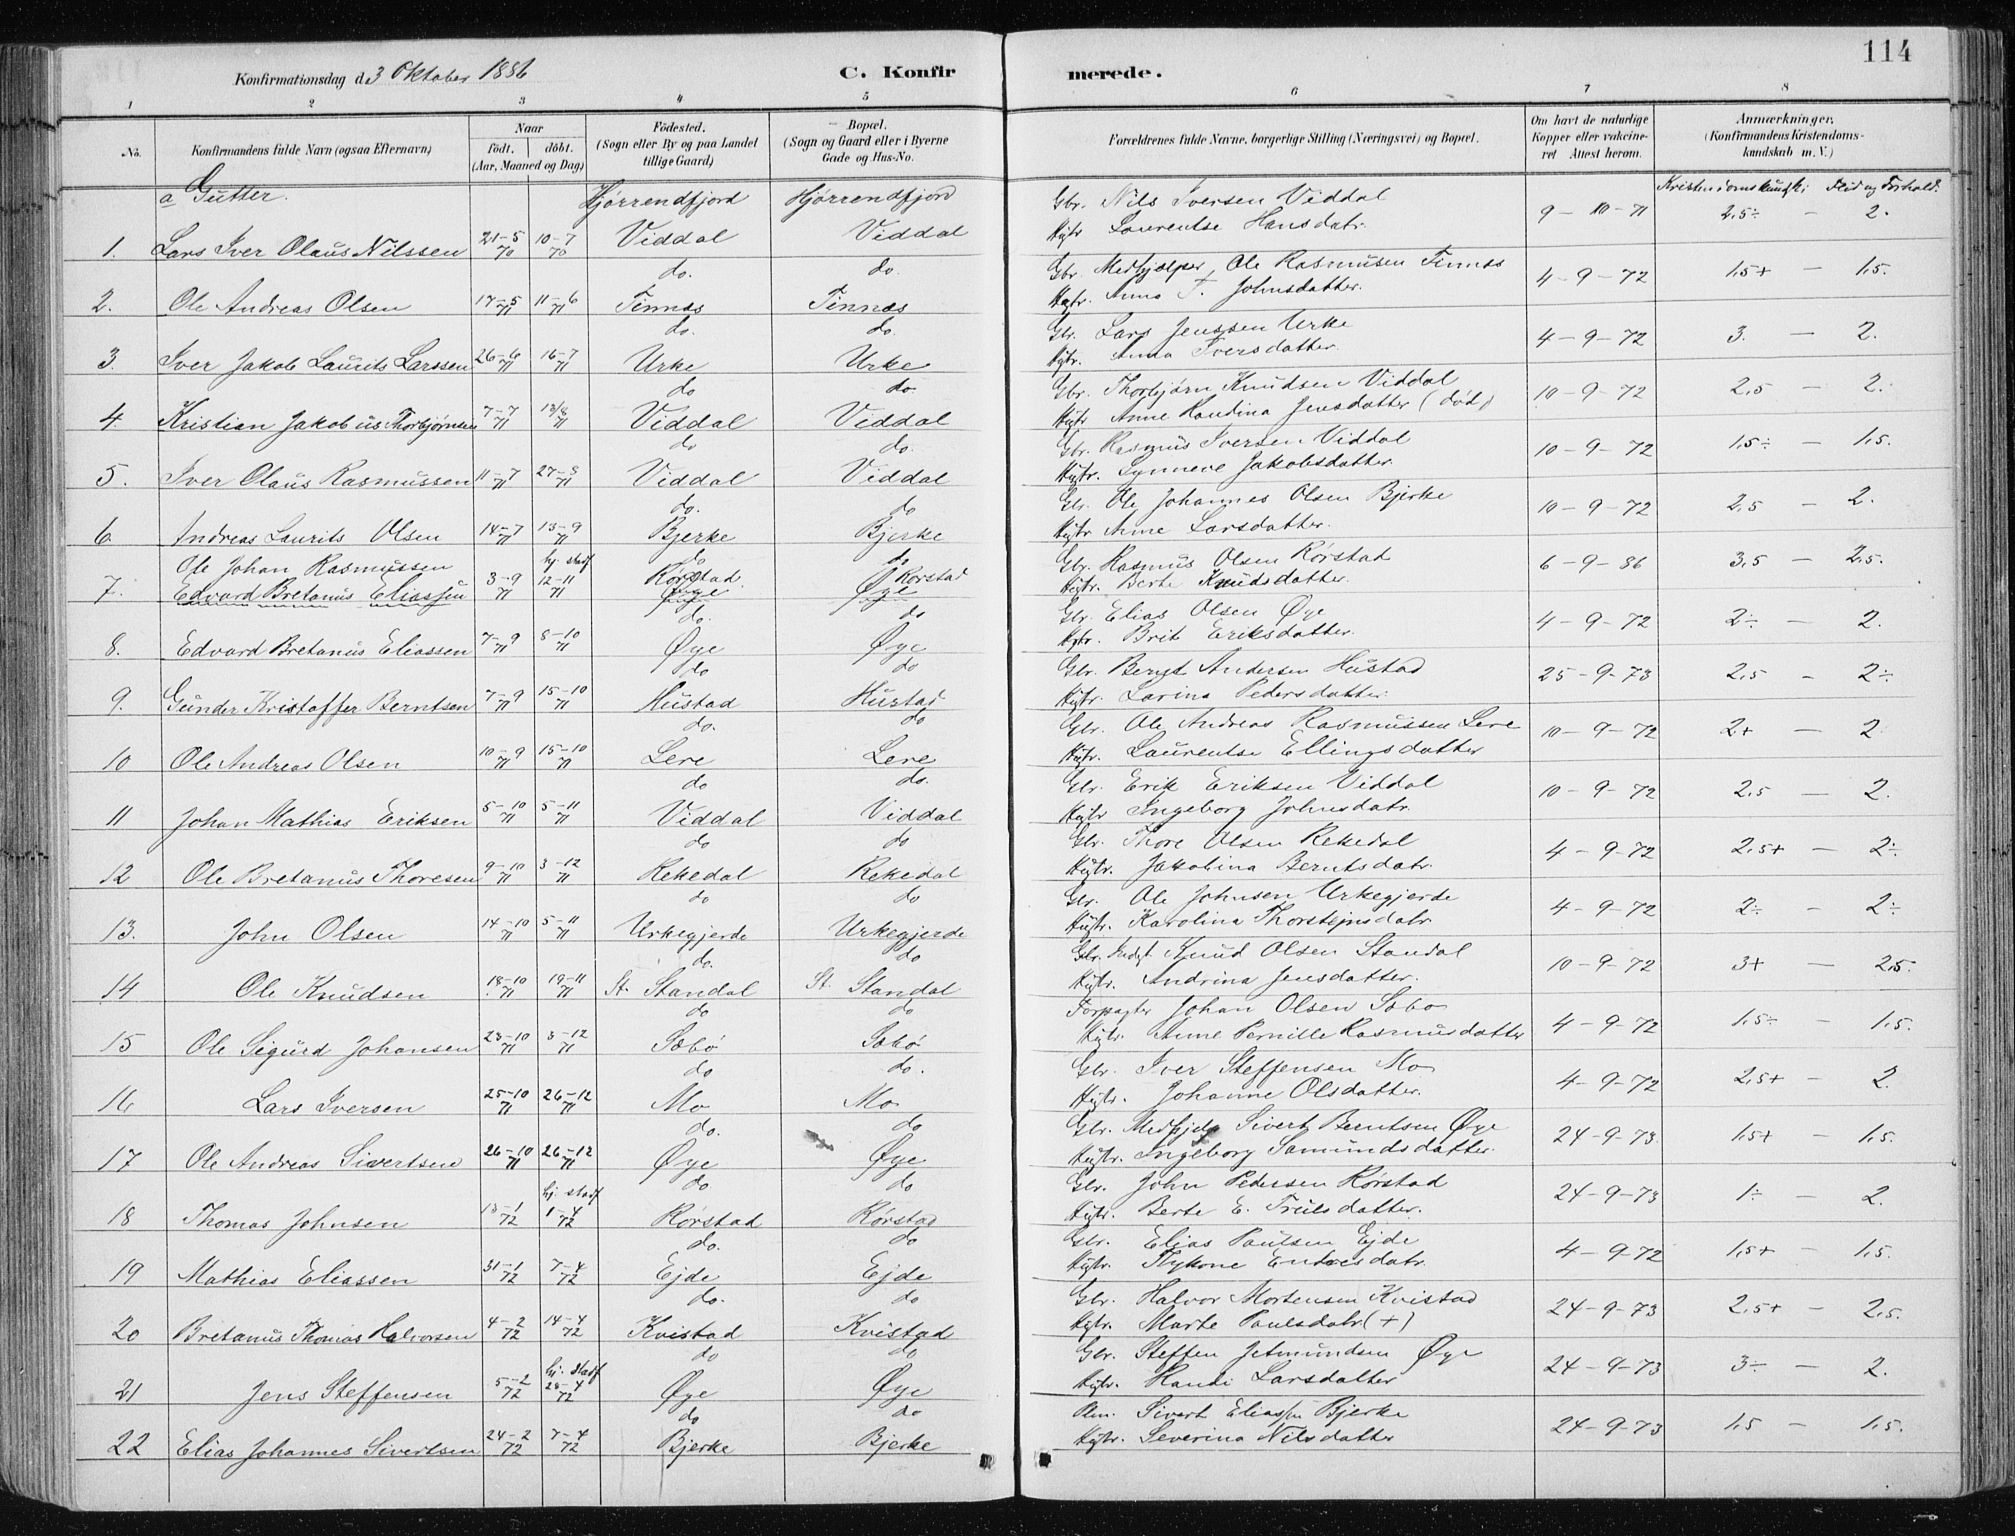 114
Konfirmationsdag d. 3 Oktober 1886
C. Konfirmerede.
1 2 3 4 5 6 7 8
No.
Konfirmandens fulde Navn (ogsaa Efternavn)
Naar
födt. döbt.
(Aar, Maaned og Dag)
Födested.
(Sogn eller By og paa Landet
tillige Gaard)
Bopæl.
(Sogn og Gaard eller i Byerne
Gade og Hus-No.
Forældrenes fulde Navne, borgerlige Stilling (Næringsvei) og Bopæl.
Om havt de naturlige
Kopper eller vakcine-
ret Attest herom.
Anmærkninger.
(Konfirmandens Kristendoms-
kundskab m. V.)
a Gutter. Hjørrendfjord Hjørrendfjord Gbr. Nils Iversen Viddal Kristendomskundsk; Flid og Forhold.
1. Lars Iver Olaus Nilssen 21-5/70 10-7/70 Viddal Viddal Hstr Laurentse Hansdatr. 9-10-71 2,5÷ - 2.
do. do. Gbr. Medhjælper Ole Rasmusen Tinnæs
2. Ole Andreas Olsen 17-5/71 11-6/71 Tinnæs Tinnæs Hstr. Anna T. Johnsdatter. 4-9-72 1,5+ - 1,5.
do. do. Gbr. Lars Jenssen Urke
3. Iver Jakob Laurits Larssen 26-6/71 16-7/71 Urke Urke Hstr. Anna Iversdatter. 4-9-72 3. - 2.
do do. Gbr. Thorbjørn Knudsen Viddal
4. Kristian Jakobus Thorbjørnsen 7-7/71 13/8/71 Viddal Viddal Hstr Anne Handina Jensdatter (død) 10-9-72 2,5 - 2.
do do. Gbr. Rasmus Iversen Viddal
5. Iver Olaus Rasmussen 11-7/71 27-8/71 Viddal Viddal Hstr. Synneve Jakobsdatter. 10-9-72 1,5÷ - 1,5.
do. do Gbr. Ole Johannes Olsen Bjerke
6. Andreas Laurits Olsen 14-7/71 13-9/71 Bjerke Bjerke Hstr Anne Larsdatter. 10-9-72 2,5 - 2.
Ole Johan Rasmussen hj. stadf do do Gbr. Rasmus Olsen Rørstad
7. Edvard Bretanus Eliassen 3-9/71 12-11/71 Rørstad. Øye Øye Rørstad Hstr. Berte Knudsdatter. 6-9-86 3,5 - 2,5.
do. do Gbr. Elias Olsen Øye
8. Edvard Bretanus Eliassen 7-9/71 8-10/71 Øye Øye Hstr. Brit Eriksdatter. 4-9-72 2÷ - 2.
do do Gbr. Bengt Andersen Hustad
9. Gunder Kristoffer Berntsen 7-9/71 15-10/71 Hustad Hustad Hstr. Larina Pedersdatter. 25-9-73 2,5 - 2÷
do. do Gbr. Ole Andreas Rasmussen Lere
10 Ole Andreas Olsen 10-9/71 15-10/71 Lere Lere Hstr. Laurentse Ellingsdatter 10-9-72 2+ - 2
do do. Gbr. Erik Eriksen Viddal
11 Johan Mathias Eriksen 5-10/71 5-11/71 Viddal Viddal Hstr Ingeborg Johnsdatr. 10-9-72 2,5 - 2.
do do Gbr. Thore Olsen Rekedal
12 Ole Bretanus Thoresen 9-10/71 3-12/71 Rekedal Rekedal Hstr. Jakobina Berntsdatr. 4-9-72 2,5+ - 2÷
do do Gbr. Ole Johnsen Urkegjerde
13. John Olsen 14-10/71 5-11/71 Urkegjerde Urkegjerde Hstr. Karolina Thorstejnsdatr 4-9-72 2÷ - 2÷
do. do Gbr. Indst Knud Olsen Standal
14 Ole Knudsen 18-10/71 19-11/71 St. Standal St. Standal Hstr. Andrina Jensdatter. 10-9-72 3+ - 2,5.
do do Forpagter Johan Olsen Sæbø
15 Ole Sigurd Johansen 23-10/71 3-12/71 Sæbø Sæbø Hstr. Anne Pernille Rasmusdatter 4-9-72 1,5÷ - 1,5.
do do. Gbr. Iver Steffensen Mo
16 Lars Iversen 25-10/71 26-12/71 Mo Mo Hstr. Johanne Olsdatter. 4-9-72 2,5+ - 2.
do. do Gbr. Medhjelp Sivert Berntsen Øye
17 Ole Andreas Sivertsen 26-10/71 26-12/71 Øye Øye Hstr. Ingeborg Samundsdatter. 24-9-73 1,5+ - 1,5.
hj. stadf do do Gbr. John Pedersen Rørstad
18 Thomas Johnsen 13-1/72 1-4/72 Rørstad Rørstad Hstr. Berte E. Trulsdatter. 24-9-73 1÷ - 2.
do. do Gbr. Elias Paulsen Ejde
19 Mathias Eliassen 31-1/72 7-4/72 Ejde Ejde Hstr. Endresdatr. 4-9-72 1,5+ - 1,5.
do. do Gbr. Halvor Mortensen Kvistad
20 Bretanus Thomas Halvorsen 4-2/72 14-4/72 Kvistad Kvistad Hstr. Marte Paulsdatr. (+) 24-9-73 2,5+ - 2,5.
hj. stadf do do Gbr. Steffen Jetmundsen Øye
21 Jens Steffensen 5-2/72 28-4/72 Øye Øye Hstr. Randi Larsdatter 24-9-73 3÷ - 2.
do do Plm. Sivert Eliassen Bjerke
22 Elias Johannes Sivertsen 24-2/72 7-4/72 Bjerke Bjerke Hstr. Severina Nilsdatter 24-9-73 1,5 - 1,5.